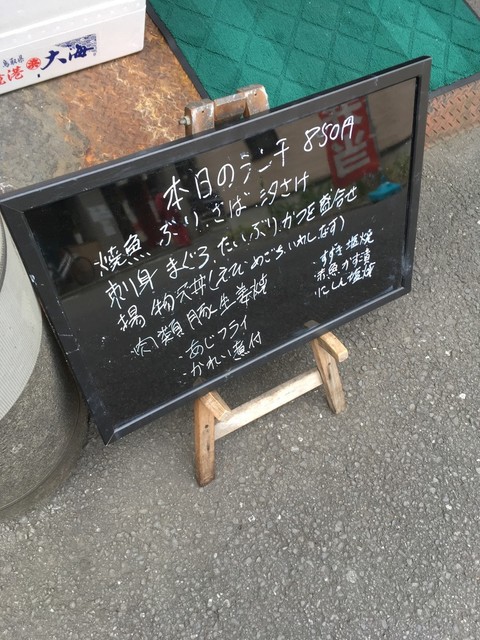 鳥取県
港 大海
本日のランチ 850円
焼魚 ぶり、さば、汐さけ
刺身 まぐろ、たい、ぶり、かつを盛合せ
揚物 天丼(えび、めごち、いわし、なす)
肉類 豚生姜焼
あじフライ
かれい煮付
すずき塩焼
赤魚かす漬
にしん塩焼